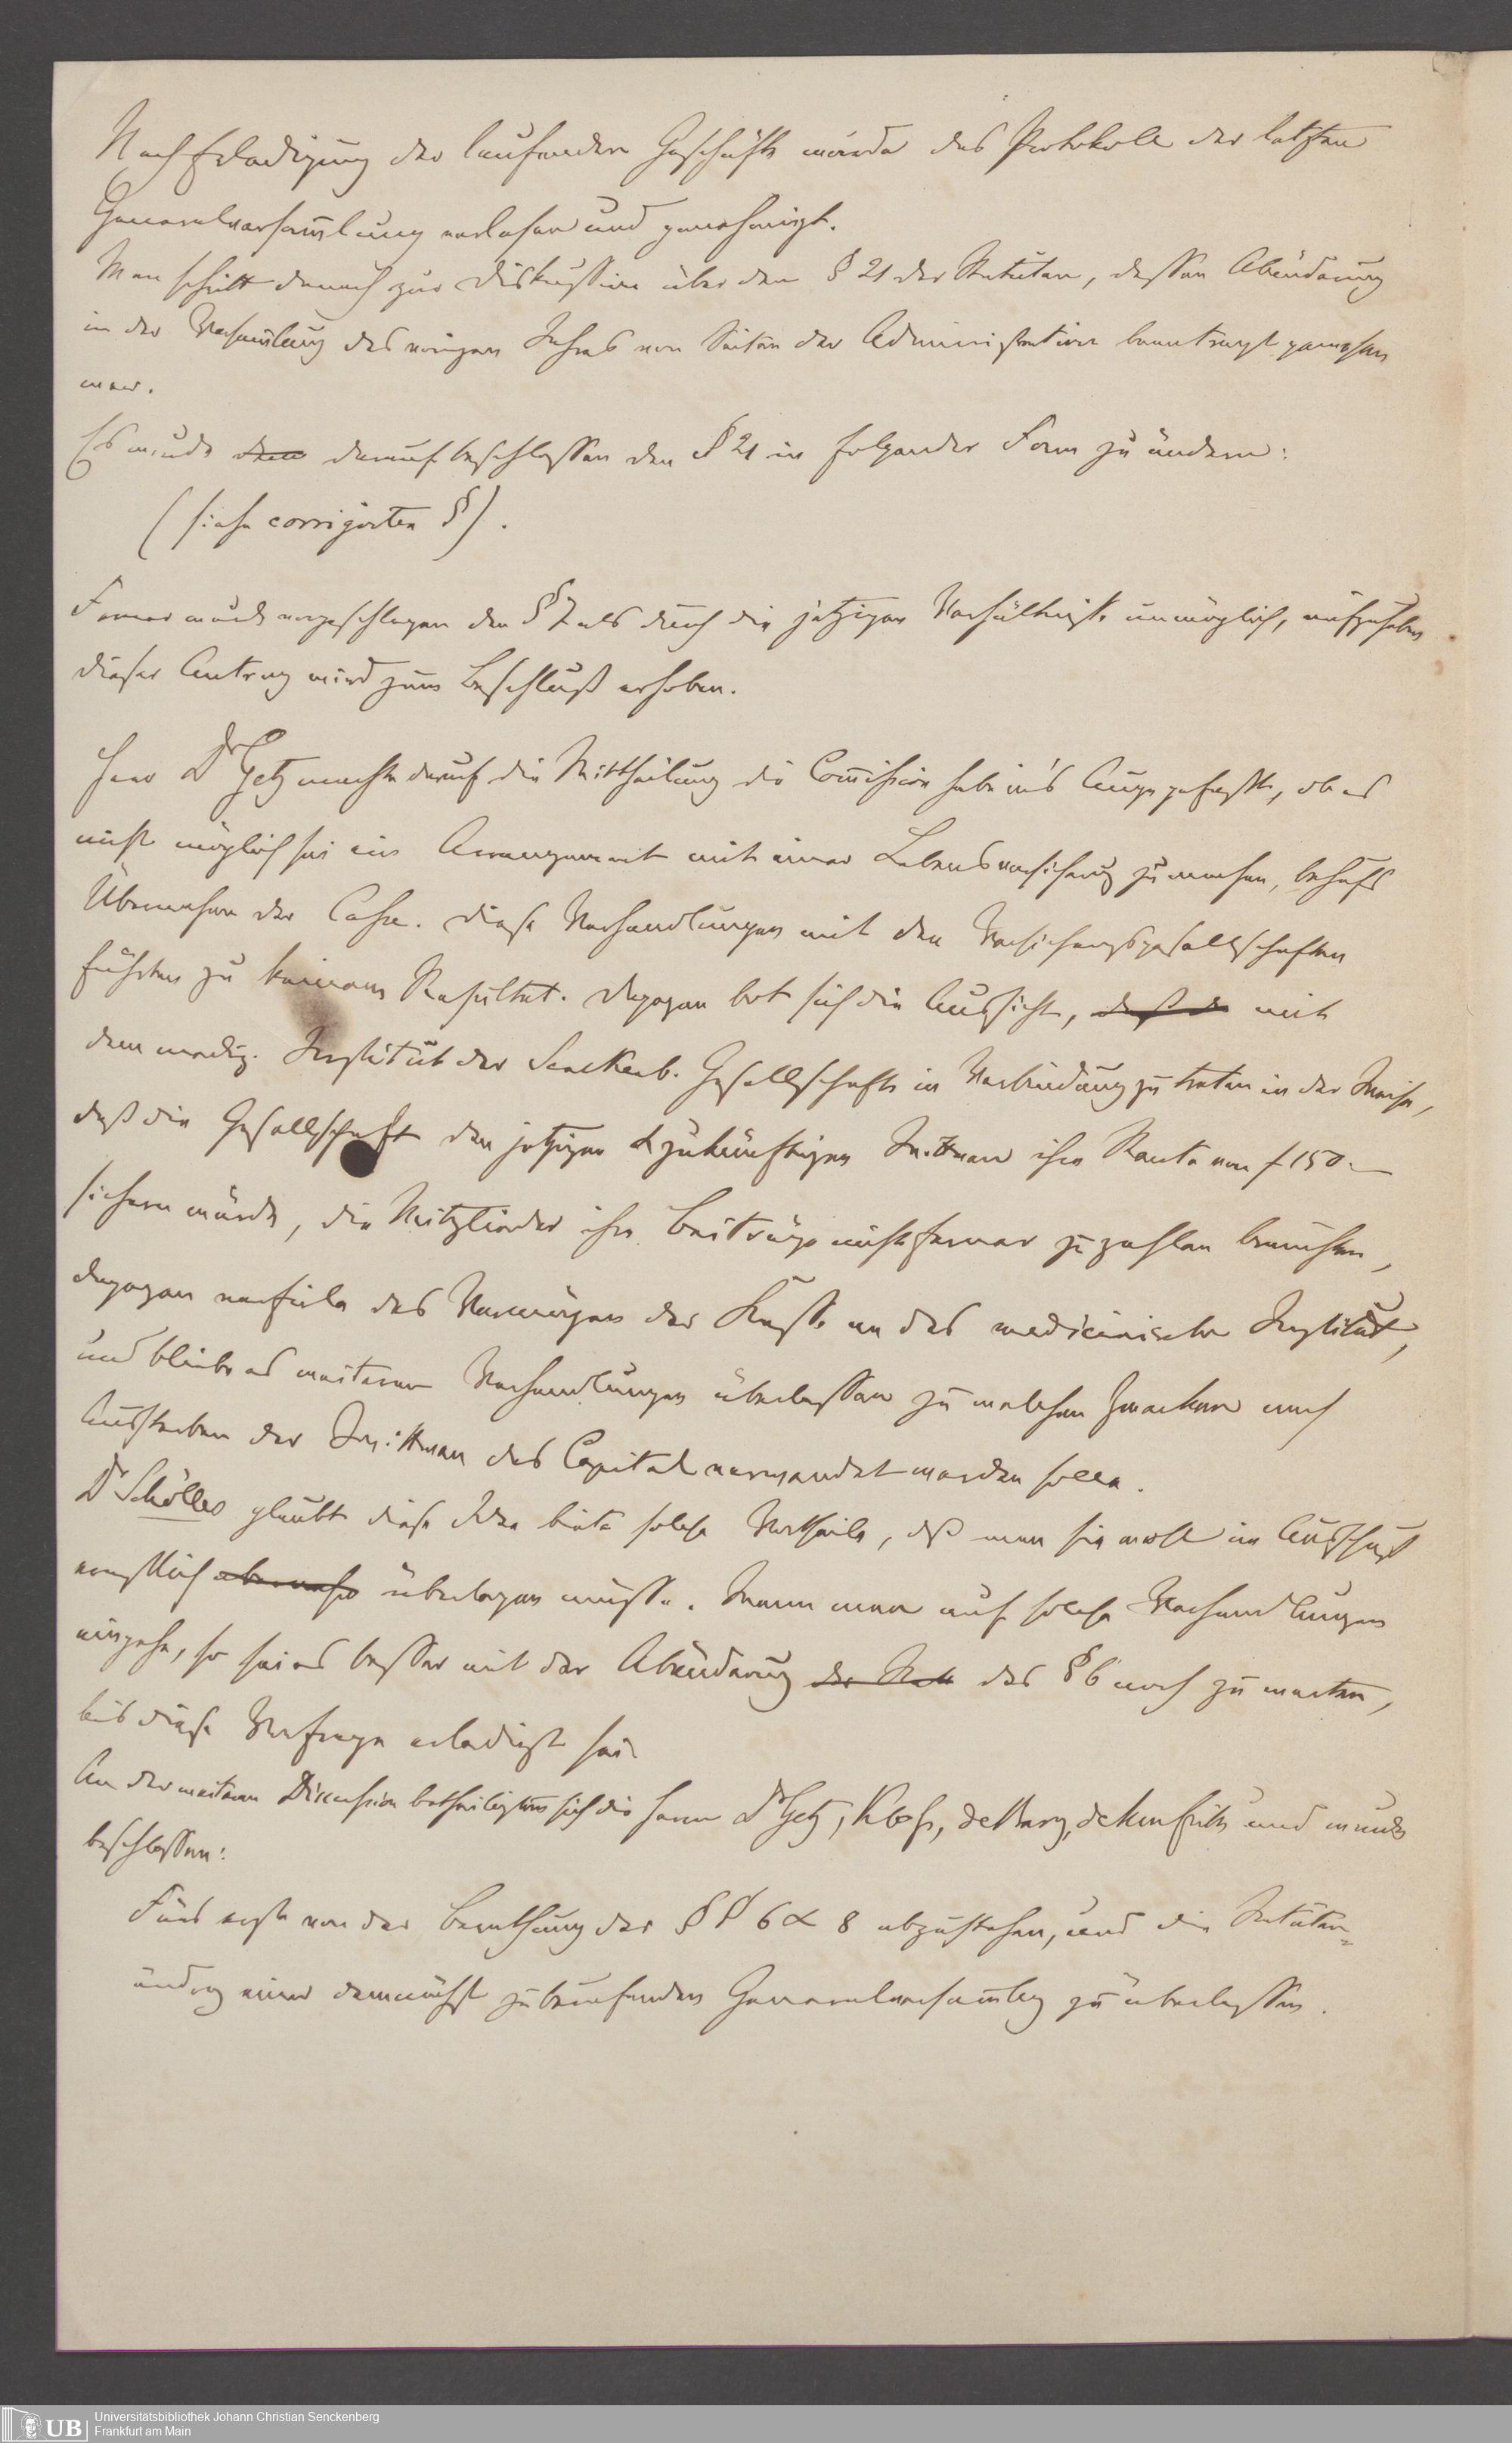 Nach Erledigung der laufenden Geschäfte wurde das Protokoll der letzten
Generalversam̅lung verlesen und genehmigt.
Man schritt danach zur Diskussion über den § 21 der Statuten, dessen Abänderung
in der Versam̅lung des vorigen Jahres von Seiten der Administration beantragt gewesen
war.
Es wurde darauf beschlossen den § 21 in folgender Form zu ändern:
(siehe corrigirten §).
Ferner wurde vorgeschlagen den § 7 als durch die jetzigen Verhältnisse unmöglich, aufzuheben
dieser Antrag wird zum Beschluß erhoben.
Herr Dr Getz machte darauf die Mittheilung die Com̅ission habe in's Auge gefaßt, ob es
nicht möglich sei ein Arrangement mit einer Lebensversicherung zu machen, behufs
Übernahme der Casse. Diese Verhandlungen mit den Versicherungsgesellschaften
führten zu keinem Resultat. Dagegen bot sich die Aussicht, daß die mit
dem mediz. Institut der Senckenb. Gesellschaft in Verbindung zu treten in der Weise,
daß die Gesellschaft den jetzigen & zukünftigen Wittwen ihre Rente von f 150.—
sichern würde, die Mitglieder ihre Beiträge nicht ferner zu zahlen brauchten,
dagegen verfiele das Vermögen der Kasse an das medicinische Institut,
und bleibe es weiteren Verhandlungen überlassen zu welchen Zwecken nach
Aussterben der Wittwen das Capital verwendet werden solle.
Dr Schölles glaubt diese Idee biete solche Vortheile, daß man sie wohl im Ausschuß
ernstlich überlegen müsse. Wenn man auf solche Verhandlungen
eingehe, so sei es besser mit der Abänderung der Stat des § 6 noch zu warten,
bis diese Vorfrage erledigt sei.
An der weiteren Discussion betheiligten sich die Herrn Dr Getz, Kloß, de Bary, de Neufville und wurde
beschlossen:
Fürs erste von der Berathung der §§ 6 & 8 abzustehen, und die Statuten-
ändrg einer demnächst zu berufenden Generalversam̅lg zu überlassen.
UB
Universitätsbibliothek Johann Christian Senckenberg
Frankfurt am Main